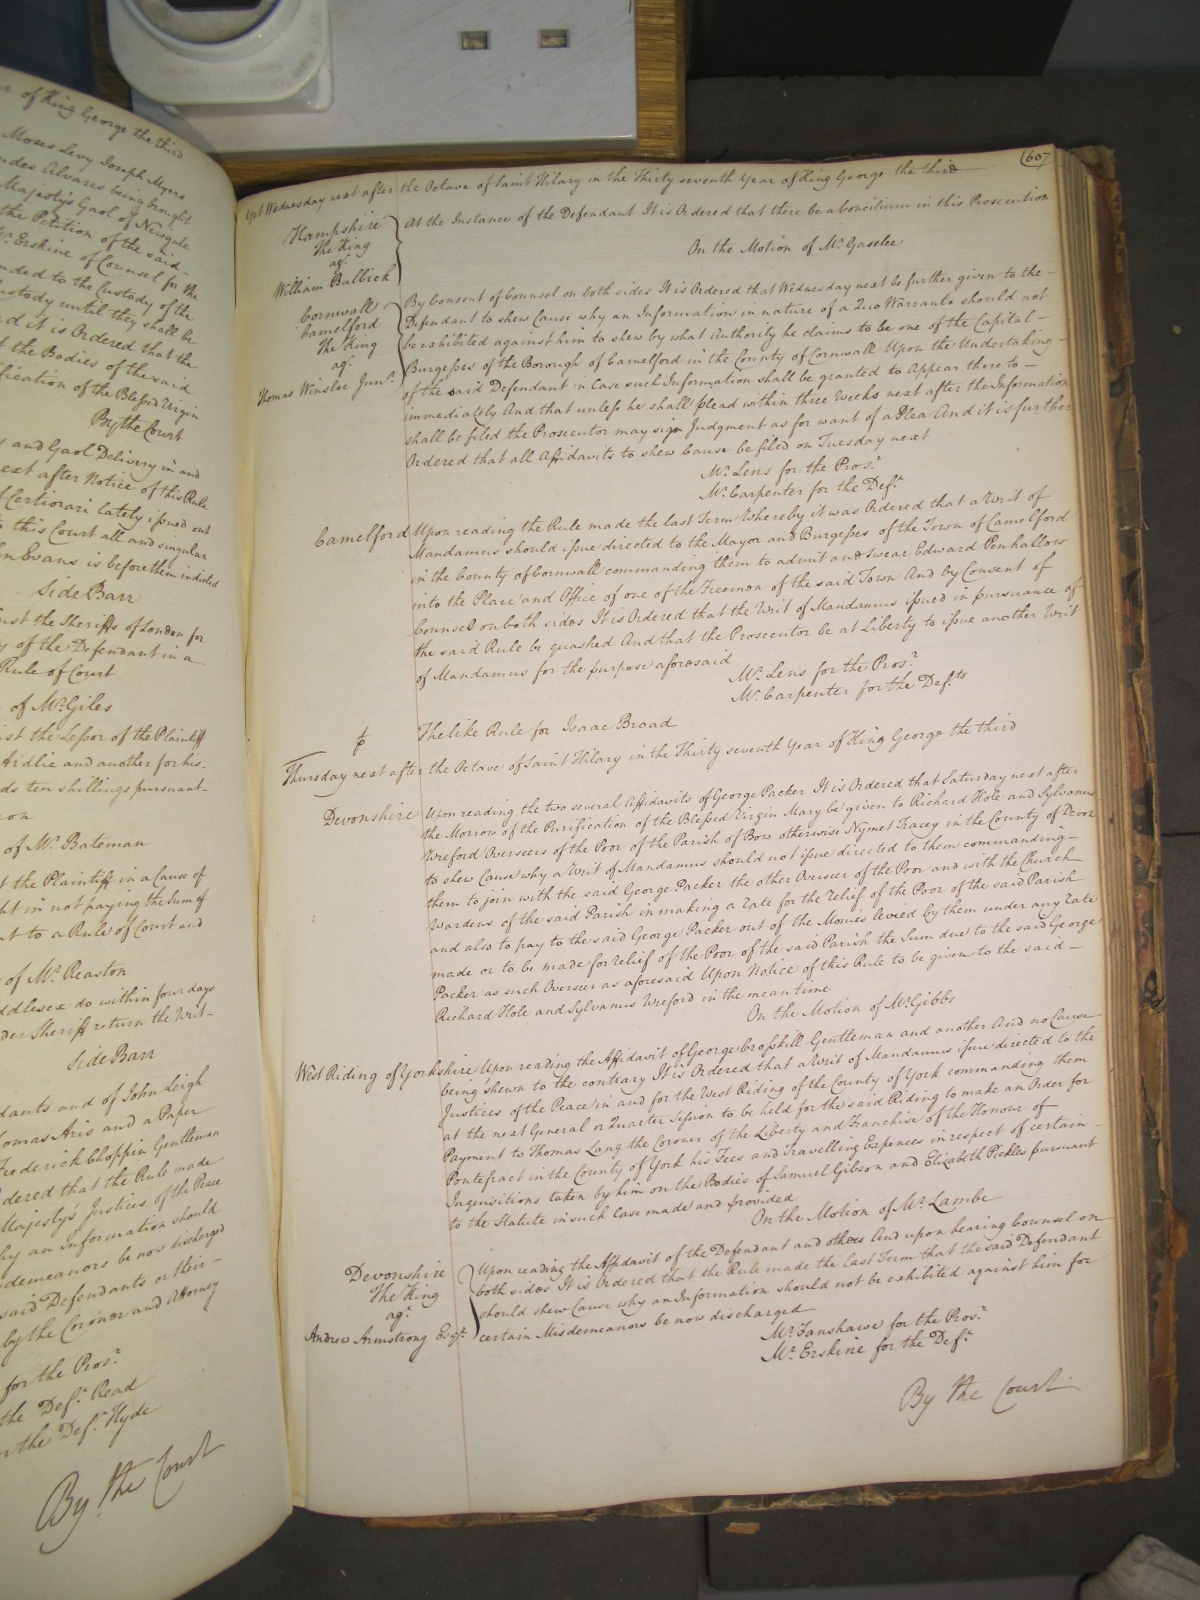 r of King George the third
Moses Levy Joseph Myers
ndes Alvares being brought
Majestys Gaol of Newgate
the Petition of the said
Mr. Erskine of Counsel for the
nded to the Custody of the
Custody until they shall be
nd it is Ordered that the
t the Bodies of the said
ification of the Blessed Virgin
By the Court
s and Gaol Delivery in and
next after Notice of this Rule
f Certiorari lately issued out
to this Court all and singular
hn Evans is before them indicted
Side Barr
nst the Sheriffs of London for
y of the Defendant in a
Rule of Court
of Mr. Giles
nst the Lessor of the Plaintiff
Airdlie and another for his
ds ten shillings pursuant
of Mr. Bateman
t the Plaintiff in a Cause of
ht in not paying the Sum of
nt to a Rule of Court and
of Mr. Reaston
ddlesex do within four days
der Sheriff return the Writ
Side Barr
dants and of John Leigh
homas Aris and a Paper
Frederick Choppin Gentleman
dered that the Rule made
Majestys Justices of the Peace
hy an Information should
sdemeanors be now discharged
said Defendants or their
by the Coroner and Attorney
for the Pros.r
the Def.t Read
r the Def.t Hyde
By the Court
607
Yet Wednesday next after the Octave of Saint Hilary in the Thirty seventh Year of King George the third
Hampshire
The King
ag.t
William Bullick
At the Instance of the Defendant It is Ordered that there be a Concilium in this Prosecution
On the Motion of Mr. Gaselee
Cornwall
Camelford
The King
ag.t
Thomas Winsloe Jun.r
By Consent of Counsel on both sides It is Ordered that Wednesday next be further given to the
Defendant to shew Cause why an Information in nature of a Quo Warranto should not
be exhibited against him to shew by what Authority he claims to be one of the Capital
Burgesses of the Borough of Camelford in the County of Cornwall Upon the Undertaking
of the said Defendant in Case such Information shall be granted to Appear there to
immediately And that unless he shall plead within three Weeks next after the Information
shall be filed the Prosecutor may sign Judgment as for want of a Plea And it is further
Ordered that all Affidavits to shew Cause be filed on Tuesday next
Mr. Lens for the Pros.r
Mr. Carpenter for the Def.t
Camelford
Upon reading the Rule made the last Term Whereby it was Ordered that a Writ of
Mandamus should issue directed to the Mayor and Burgesses of the Town of Camelford
in the County of Cornwall commanding them to admit and swear Edward Penhallow
into the Place and Office of one of the Freemen of the said Town And by Consent of
Counsel on both sides It is Ordered that the Writ of Mandamus issued in pursuance of
the said Rule be quashed And that the Prosecutor be at Liberty to issue another Writ
of Mandamus for the purpose aforesaid
Mr. Lens for the Pros.r
Mr. Carpenter for the Def.ts
The like Rule for Isaac Broad
Thursday next after the Octave of Saint Hilary in the Thirty seventh Year of King George the third
Devonshire
Upon reading the two several Affidavits of George Packer It is Ordered that Saturday next after
the Morrow of the Purification of the Blessed Virgin Mary be given to Richard Hole and Sylvanus
Wreford Overseers of the Poor of the Parish of Bow otherwise Nymet Tracey in the County of Devon
to shew Cause why a Writ of Mandamus should not issue directed to them commanding
them to join with the said George Packer the other Overseer of the Poor and with the Church
Wardens of the said Parish in making a Rate for the Relief of the Poor of the said Parish
and also to pay to the said George Packer out of the Monies levied by them under any Rate
made or to be made for relief of the Poor of the said Parish the Sum due to the said George
Packer as such Overseer as aforesaid Upon Notice of this Rule to be given to the said
Richard Hole and Sylvanus Wreford in the mean time
On the Motion of Mr. Gibbs
West Riding of Yorkshire
Upon reading the Affidavit of George Crosskill Gentleman and another And no Cause
being shewn to the contrary It is Ordered that a Writ of Mandamus issue directed to the
Justices of the Peace in and for the West Riding of the County of York commanding them
at the next General or Quarter Session to be held for the said Riding to make an Order for
Payment to Thomas Lang the Coroner of the Liberty and Franchise of the Honour of
Pontefract in the County of York his Fees and Travelling Expences in respect of certain
Inquisitions taken by him on the Bodies of Samuel Gibson and Elizabeth Pickles pursuant
to the Statute in such Case made and provided
On the Motion of Mr. Lambe
Devonshire
The King
ag.t
Andrew Armstrong Esq.r
Upon reading the Affidavit of the Defendant and others And upon hearing Counsel on
both sides It is Ordered that the Rule made the last Term that the said Defendant
should shew Cause why an Information should not be exhibited against him for
certain Misdemeanors be now discharged
Mr. Fanshawe for the Pros.r
Mr. Erskine for the Def.t
By the Court